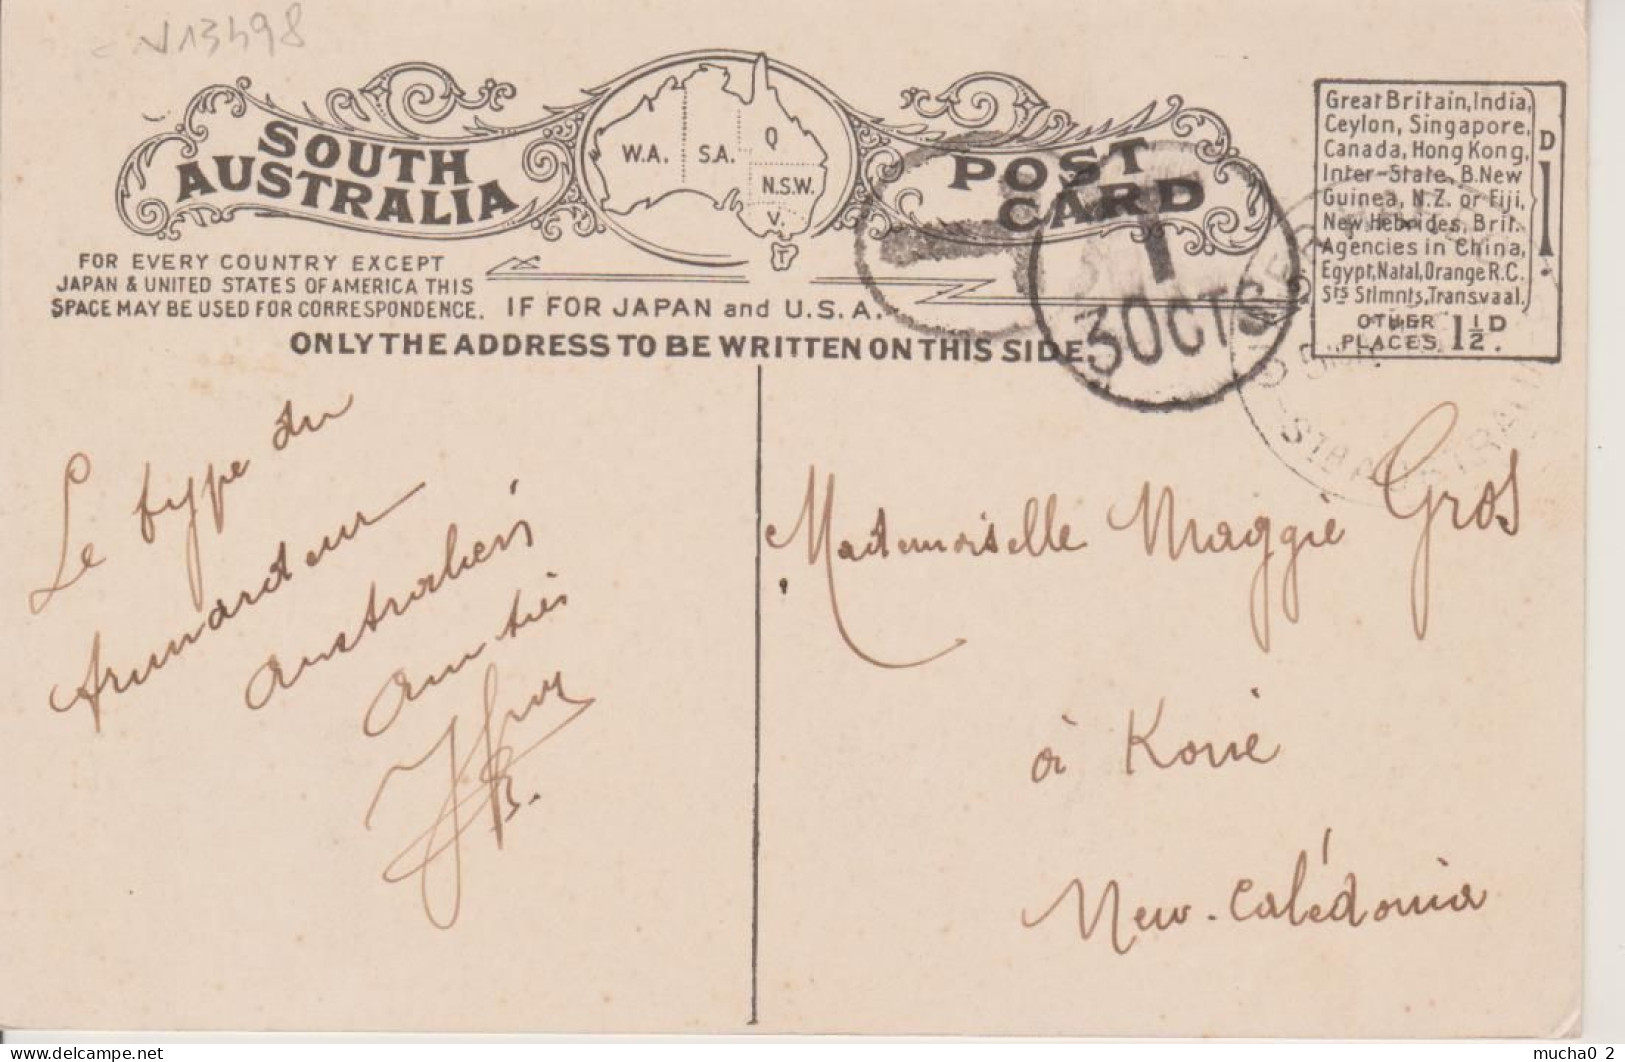 V13498
SOUTH
AUSTRALIA
W.A.
S.A.
Q
N.S.W.
V.
T
POST
CARD
FOR EVERY COUNTRY EXCEPT
JAPAN & UNITED STATES OF AMERICA THIS
SPACE MAY BE USED FOR CORRESPONDENCE.
IF FOR JAPAN and U.S.A.
ONLY THE ADDRESS TO BE WRITTEN ON THIS SIDE.
T
30CTS
Great Britain, India,
Ceylon, Singapore,
Canada, Hong Kong,
Inter-State, B. New
Guinea, N.Z. or Fiji,
New Hebrides, Brit.
Agencies in China,
Egypt, Natal, Orange R.C.
Sts Stlmnts, Transvaal.
D
1.
OTHER
PLACES
1½D.
STH AUSTRALIA
Le type du
australien
amitiés
B.
Mademoiselle Maggie Gros
à Koné
New-Calédonia
mucha0_2